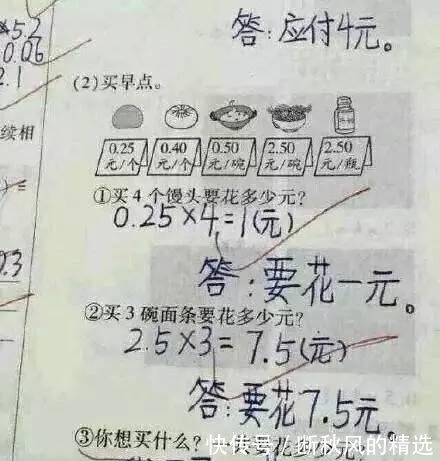 ×5.2
0.06
2.1
答:应付4元。
(2)买早点。
续相
0.25 元/个
0.40 元/个
0.50 元/碗
2.50 元/碗
2.50 元/瓶
①买4个馒头要花多少元?
0.25×4=1(元)
0.3
答:要花一元。
②买3碗面条要花多少元?
2.5×3=7.5(元)
答:要花7.5元。
③你想买什么?一共要花多少元?
快传号/断秋风的精选